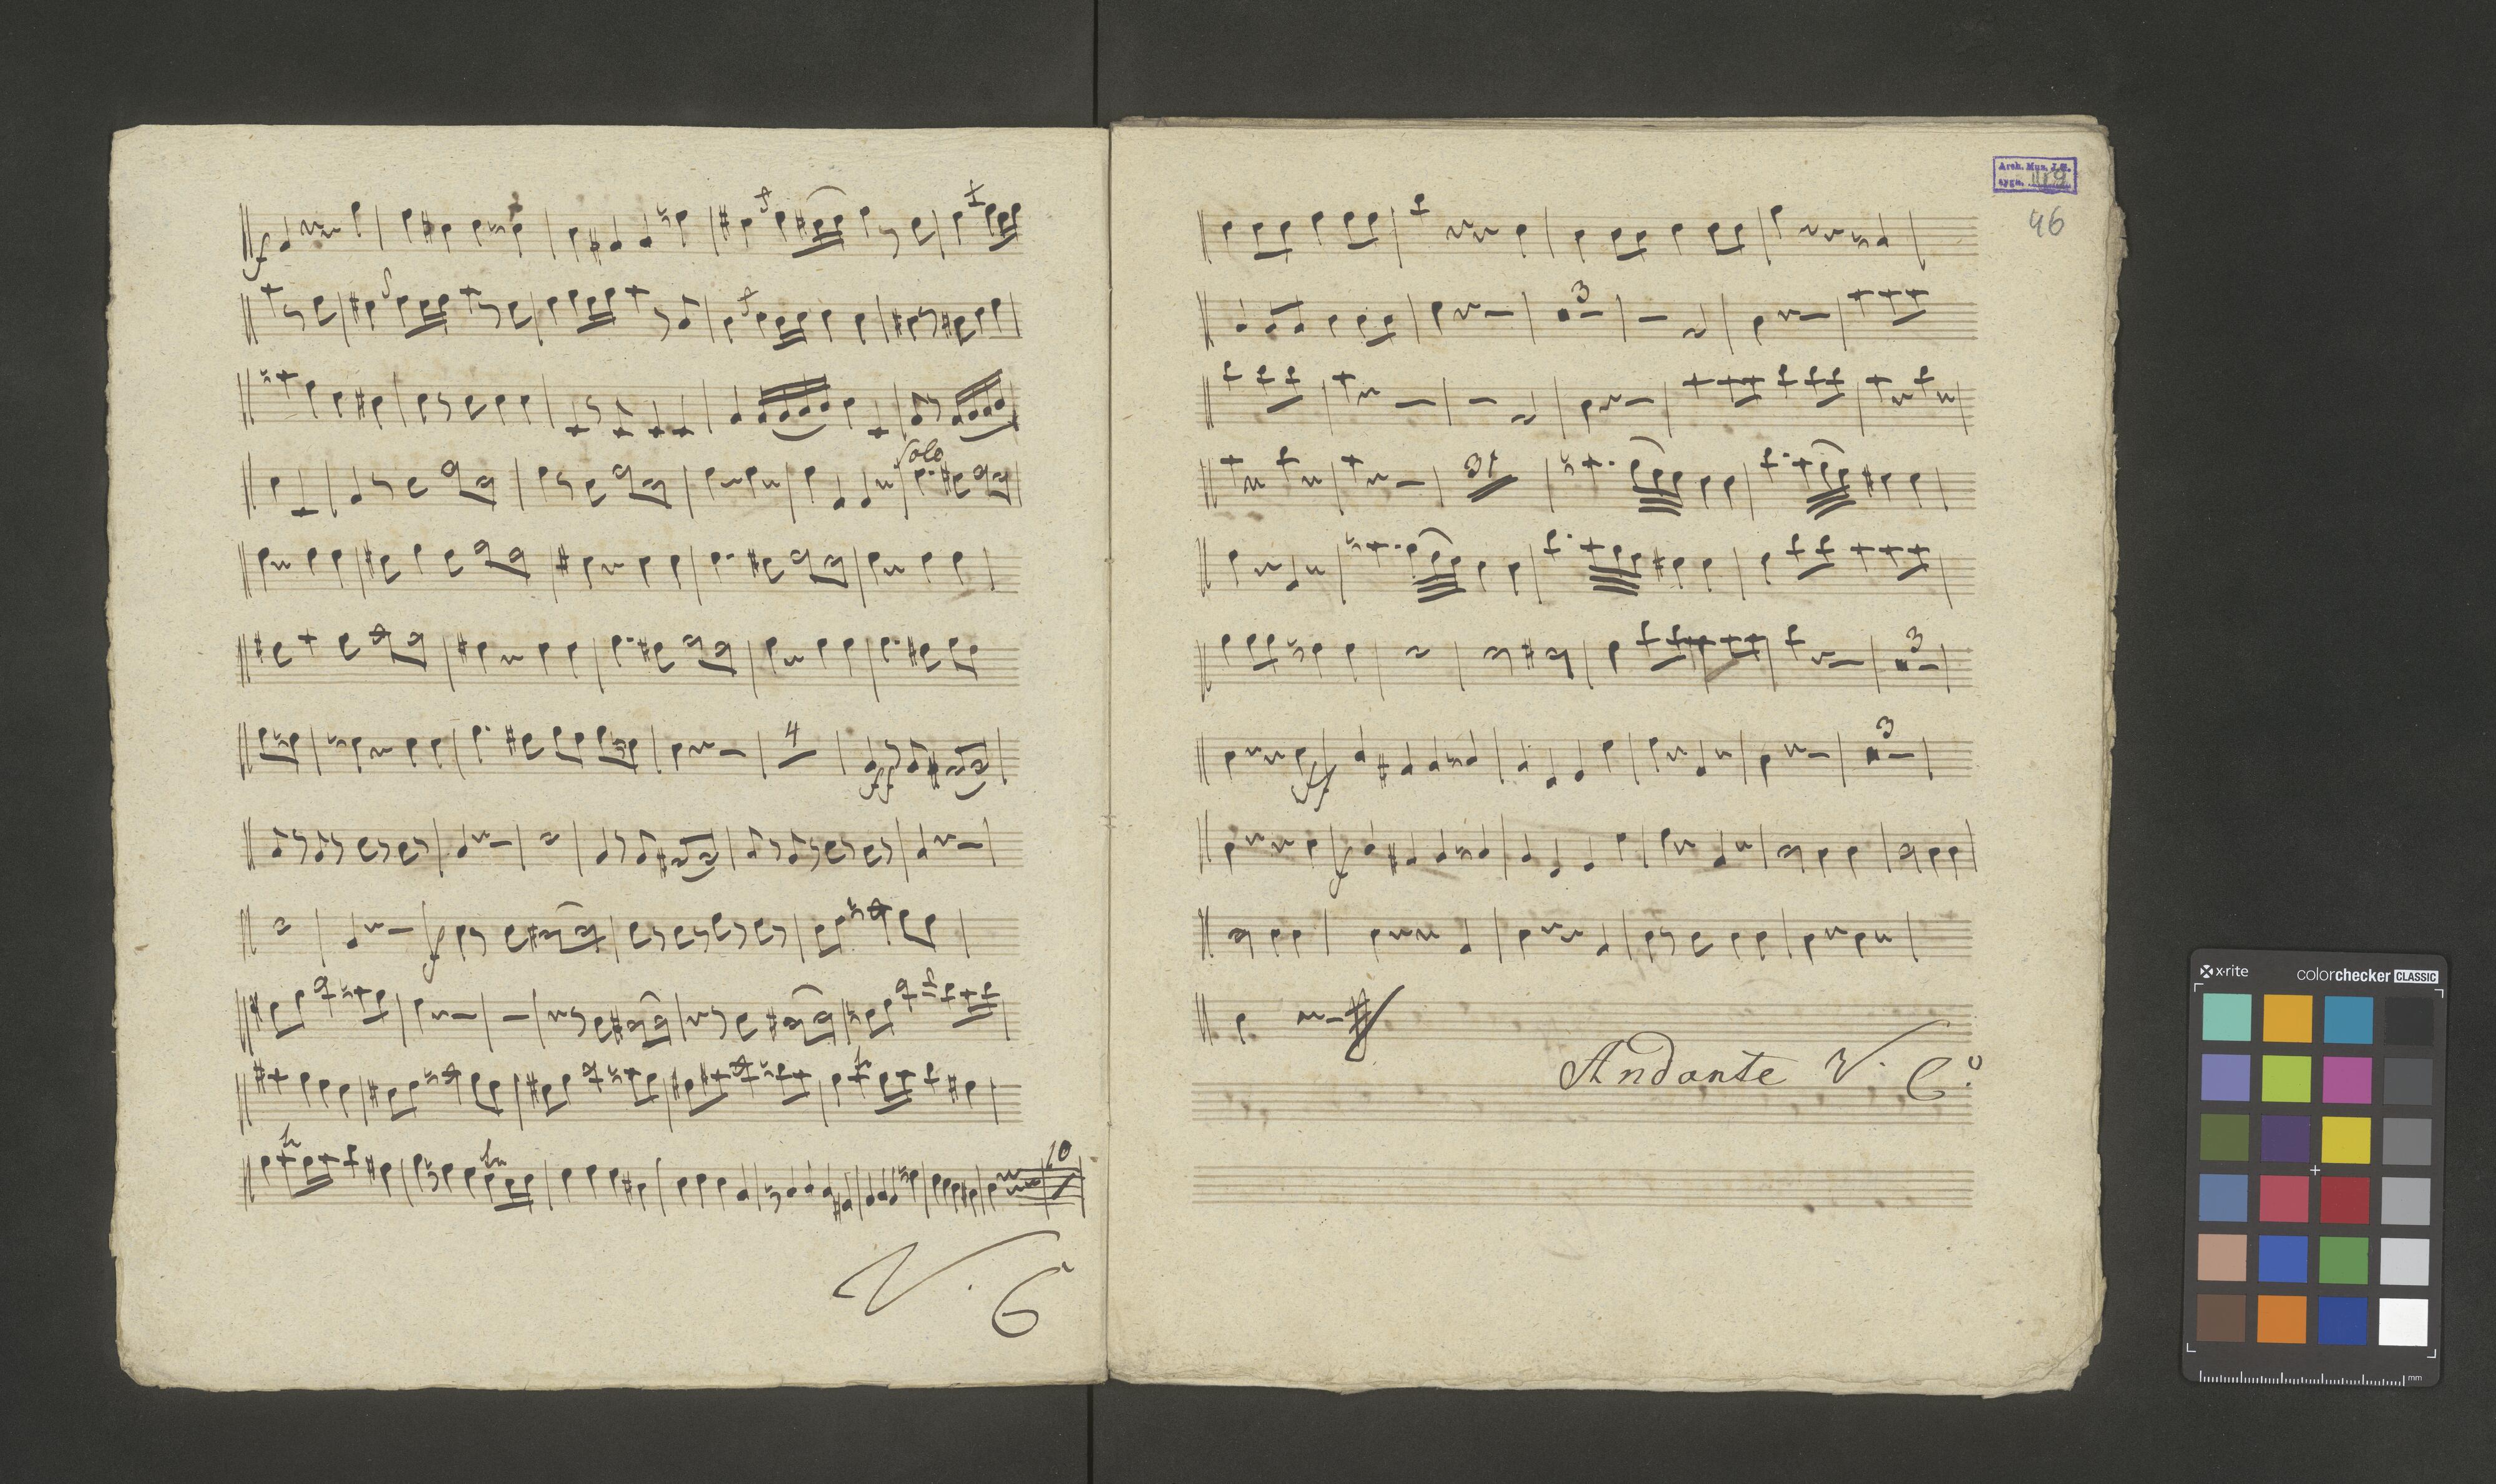 f
Solo
4
ff
f
10
V. S
Arch. Mus. J.G.
sygn. 119
46
3
31
3
3
ff
f
Andante V. S:
x-rite
colorchecker CLASSIC
mm